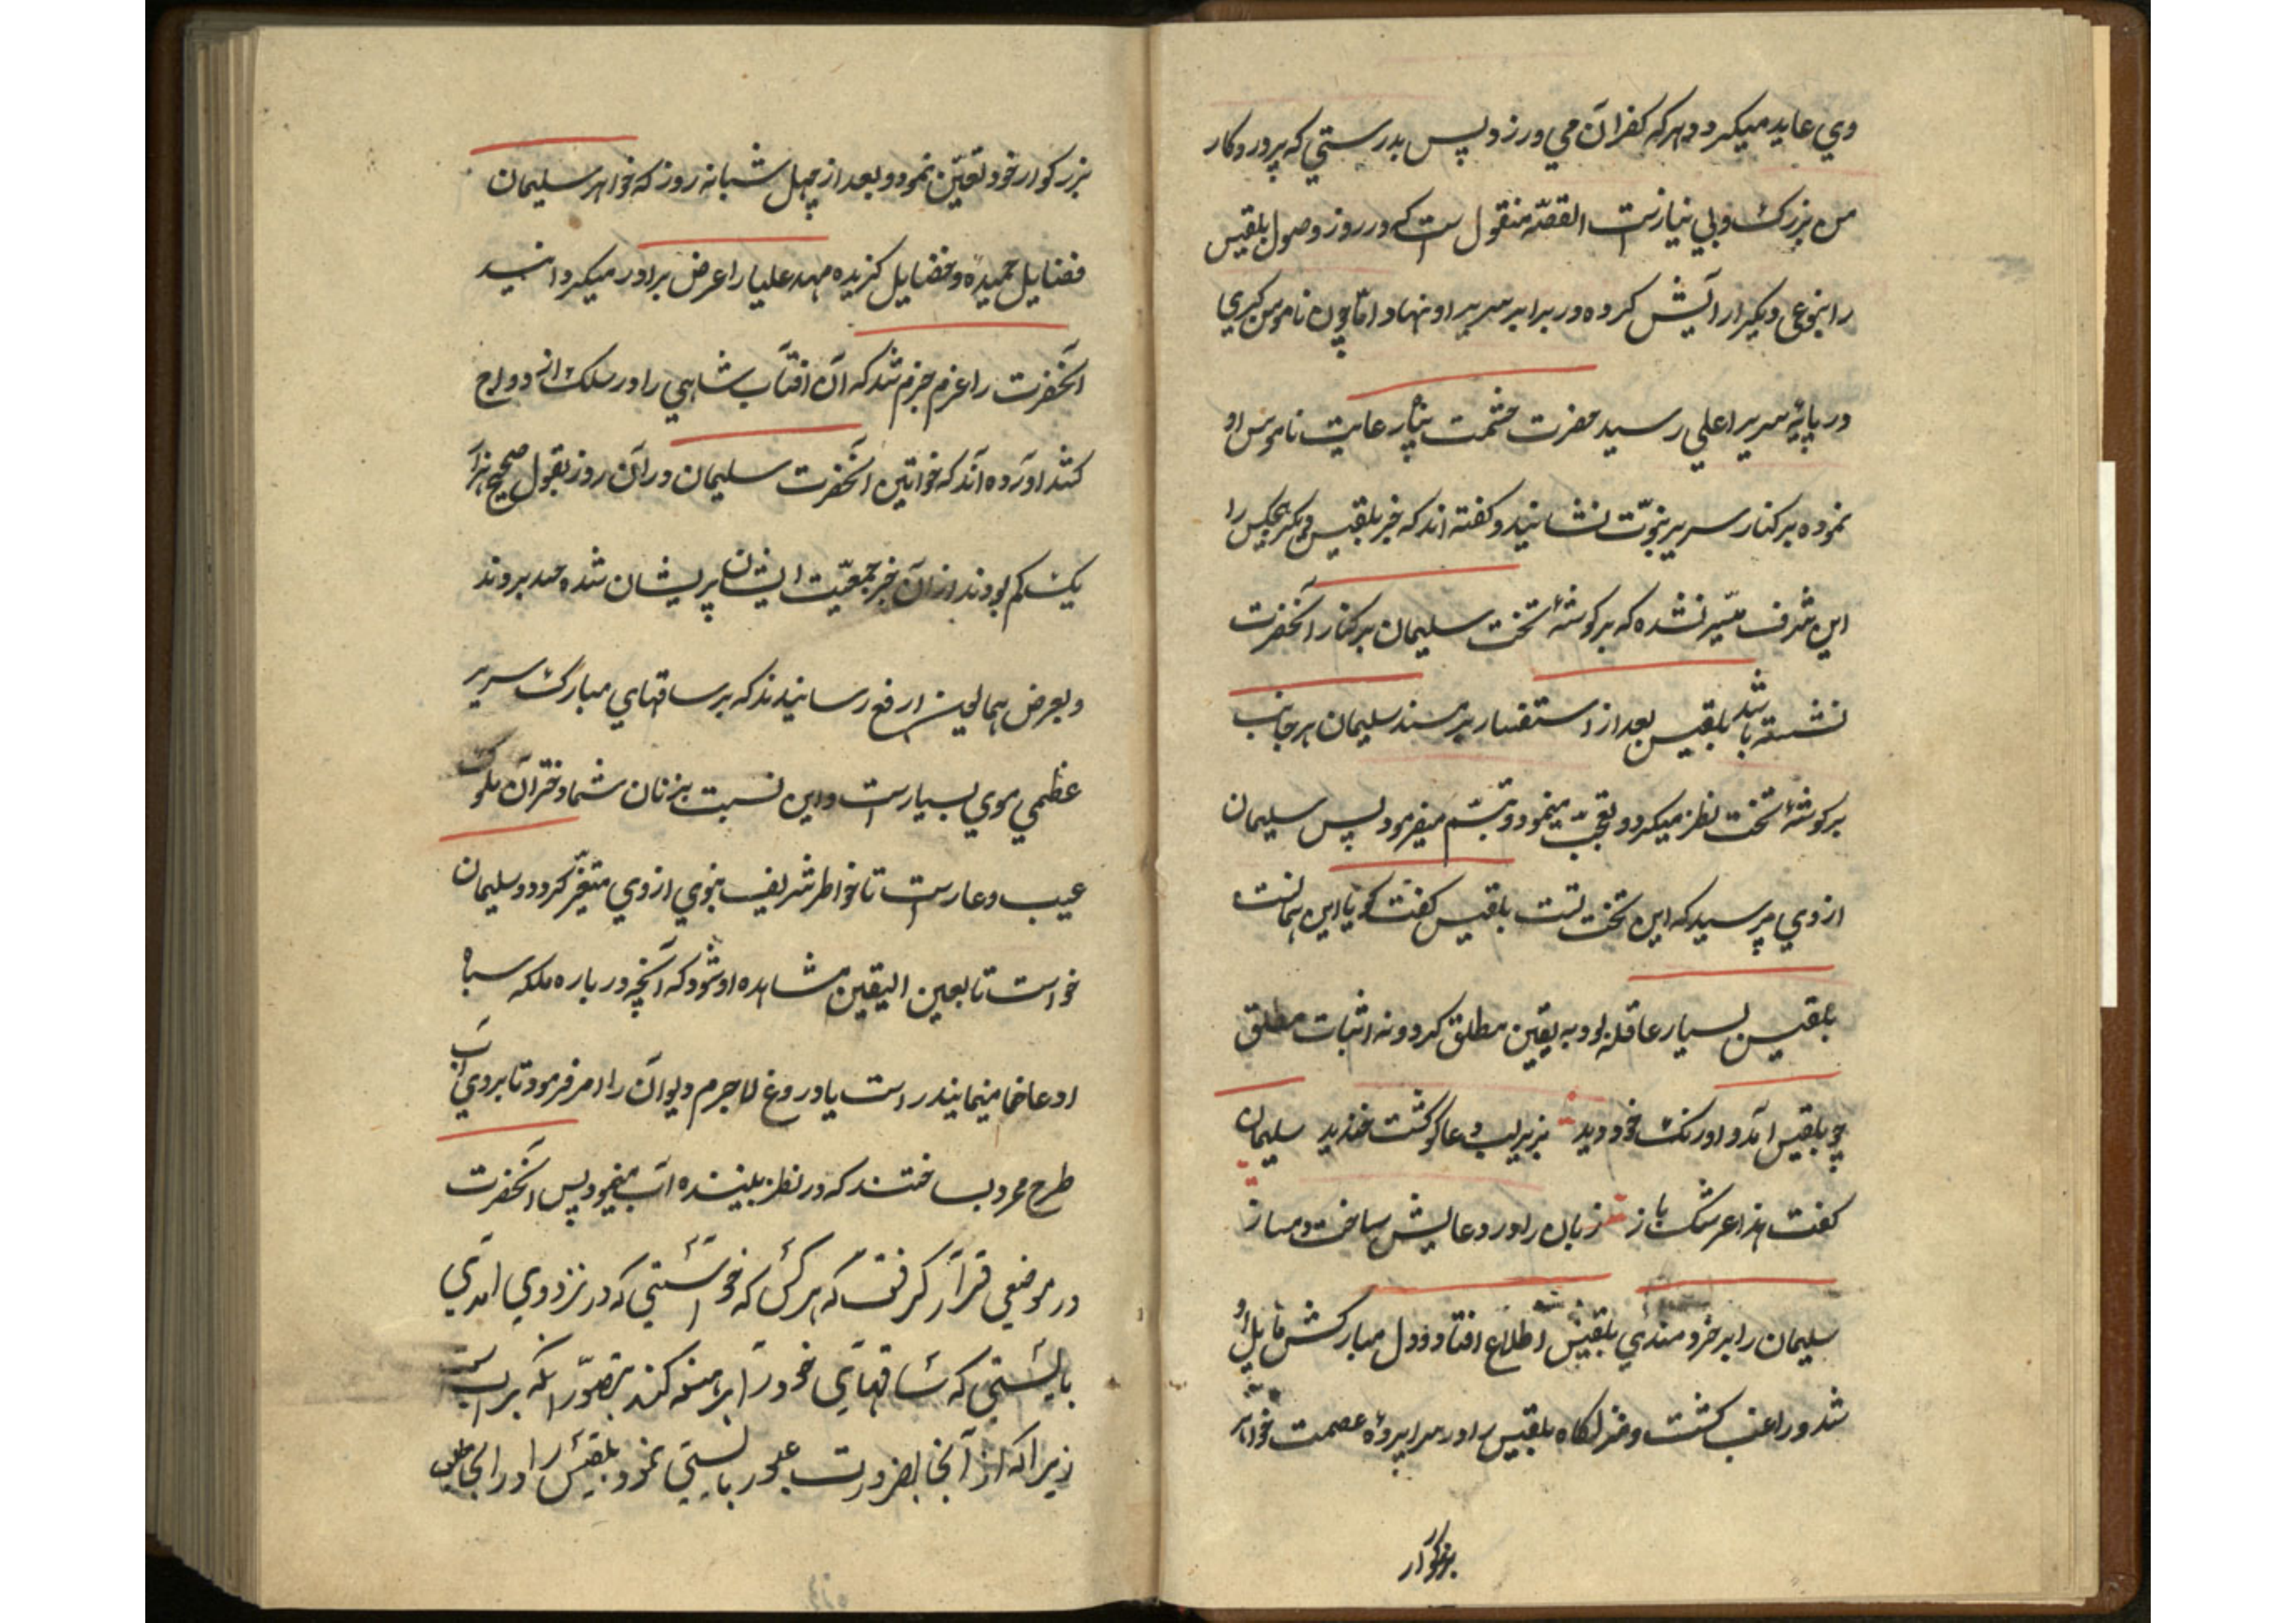 وي عايد ميكردد و هركه كفران مي ورزد پس بدرستي كه پروردكار
من بزرك و بي نيازست القصّه منقول است كه در روز وصول بلقيس
را بنوعي ديكر آرايش كرده در برابر سرير او نهاد اما چون ناموس كبري
در پايهٔ سرير اعلي رسيد حضرت حشمت پناه رعايت ناموس او
نموده بر كنار سرير نبوّت نشانيد و كفته اند كه خبر بلقيس ديكر هيچكس را
اين شرف ميسّر نشده كه بر كوشهٔ تخت سليمان بر كنار آنحضرت
نشسته باشد بلقيس بعد از استفسار بر مسند سليمان هر جانب
بر كوشهٔ تخت نظر ميكرد و تعجّب مينمود و تبسّم ميفرمود پس سليمان
از وي پرسيد كه اين تخت تست بلقيس كفت كويا اين همانست
بلقيس بسيار عاقله بود به يقين مطلق كرد و نه اثبات مطلق
چو بلقيس آمد و اورنك خود ديد بزير لب دعا كوشت خنديد سليمان
كفت هذا عرشك باز زبان را در دعايش ساخت دمساز
سليمان را بر خردمندي بلقيس اطلاع افتاد و دل مباركش مايل او
شد و راغب كشت و منزلكاه بلقيس را در سراپردهٔ عصمت خواهر
بزركوار
بزركوار خود تعيّن نمود و بعد از چهل شبانه روز كه خواهر سليمان
فضايل حميده و خصايل كزيده مهد عليا را عرض برادر ميكردانيد
آنحضرت را عزم جزم شد كه آن آفتاب شاهي را در سلك ازدواج
كشد آورده اند كه خواتين آنحضرت سليمان در آن روز بقول صحيح هزار
يك كم بودند از آن خبر جمعيّت ايشان پريشان شده حسد بردند
و بعرض همايون ارفع رسانيدند كه بر ساقهاي مبارك سرير
عظمي موي بسيارست و اين نسبت بزنان شما دختران ملوك
عيب و عارست تا خاطر شريف نبوي از وي متغيّر كردد و سليمان
خواست تا بعين اليقين مشاهده او شود كه آنچه در باره ملكه سباه
ادعا مينمايند راست يا دروغ لاجرم ديوان را امر فرمود تا بروي آب
طرح ممرد بساختند كه در نظر بيننده آب مينمود پس آنحضرت
در موضعي قرار كرفت كه هر كس كه خواستي كه در نزد وي آمدي
بايستي كه ساقهاي خود را برهنه كند بتصوّر آنكه بر آب است
زيرا كه از آنجا بضرورت عبور بايستي نمود بلقيس را در آنجا طلب